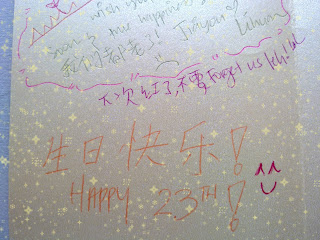 wish you
the happiness
我们都老了! Jiayan & Lihun
下次红了,不要forget us lah! lol
生日快乐!
HAPPY 23TH!